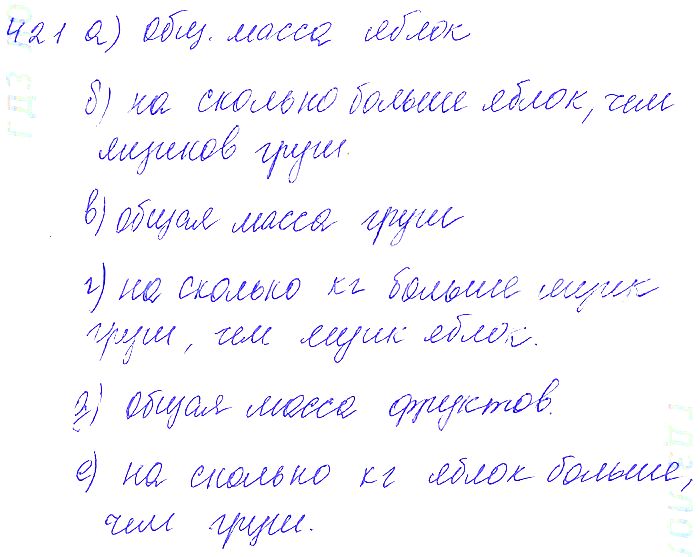 421 а) общ. масса яблок
б) на сколько больше яблок, чем
ящиков груш.
в) общая масса груш
г) на сколько кг больше ящик
груш, чем ящик яблок.
д) общая масса фруктов.
е) на сколько кг яблок больше,
чем груш.